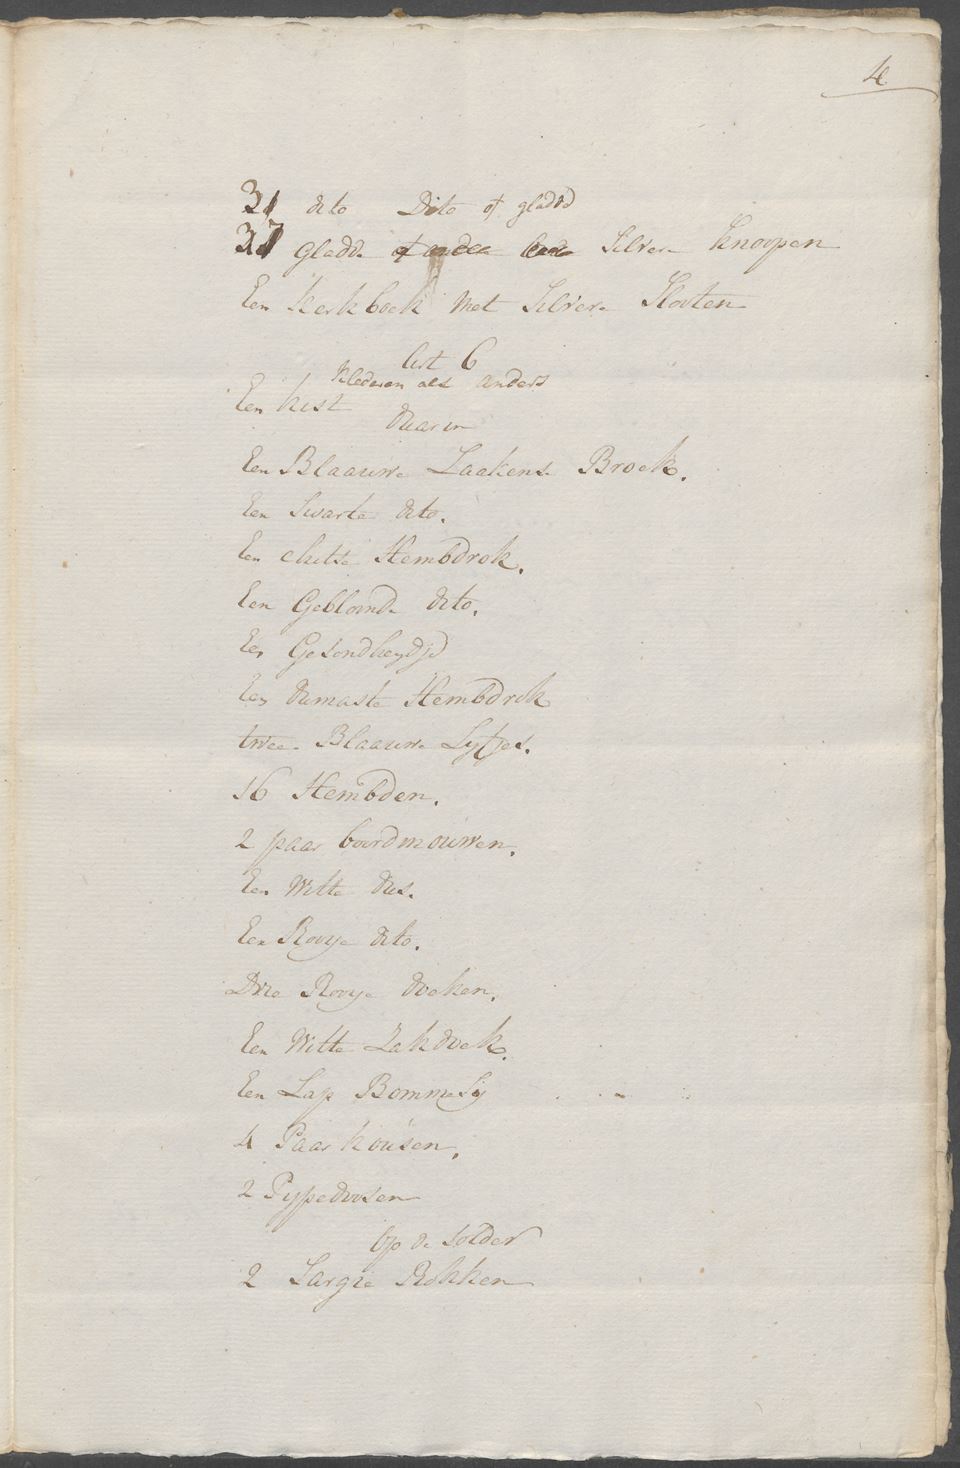 4
31 dito Dito of gladd
37 gladde Silvere Knoopen
Een Kerkboek met Silvere Slooten
lit 6
Klederen als anders
Een kist
daar in
Een Blaauwe Laakense Broek.
Een Swarte dito.
Een chitse Hembdrok.
Een Geblomde dito.
Een Gesondheydje
Een damaste Hembdrok
twee Blaauwe Lyfjes.
16 Hembden.
2 paar boordmouwen.
Een Witte das.
Een Rooye dito.
Drie Rooye doeken.
Een Witte Zakdoek.
Een Lap Bommesij
4 Paar kousen.
2 Pypedoosen
Op de solder
2 Sargie Rokken